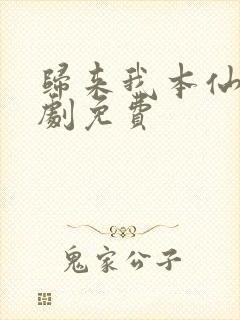 歸来我本仙
劇免費
鬼家公子